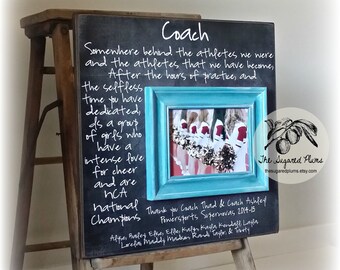 Coach
Somewhere behind the athletes we were
and the athletes that we have become,
After the hours of practice, and
the selfless
time you have
dedicated,
is a group
of girls who
have a
intense love
for cheer
and are
NCA
National
Champions.
Thank you Coach Thad & Coach Ashley
Powersports Supernovas 2014-15
The Sugared Plums
thesugaredplums.etsy.com